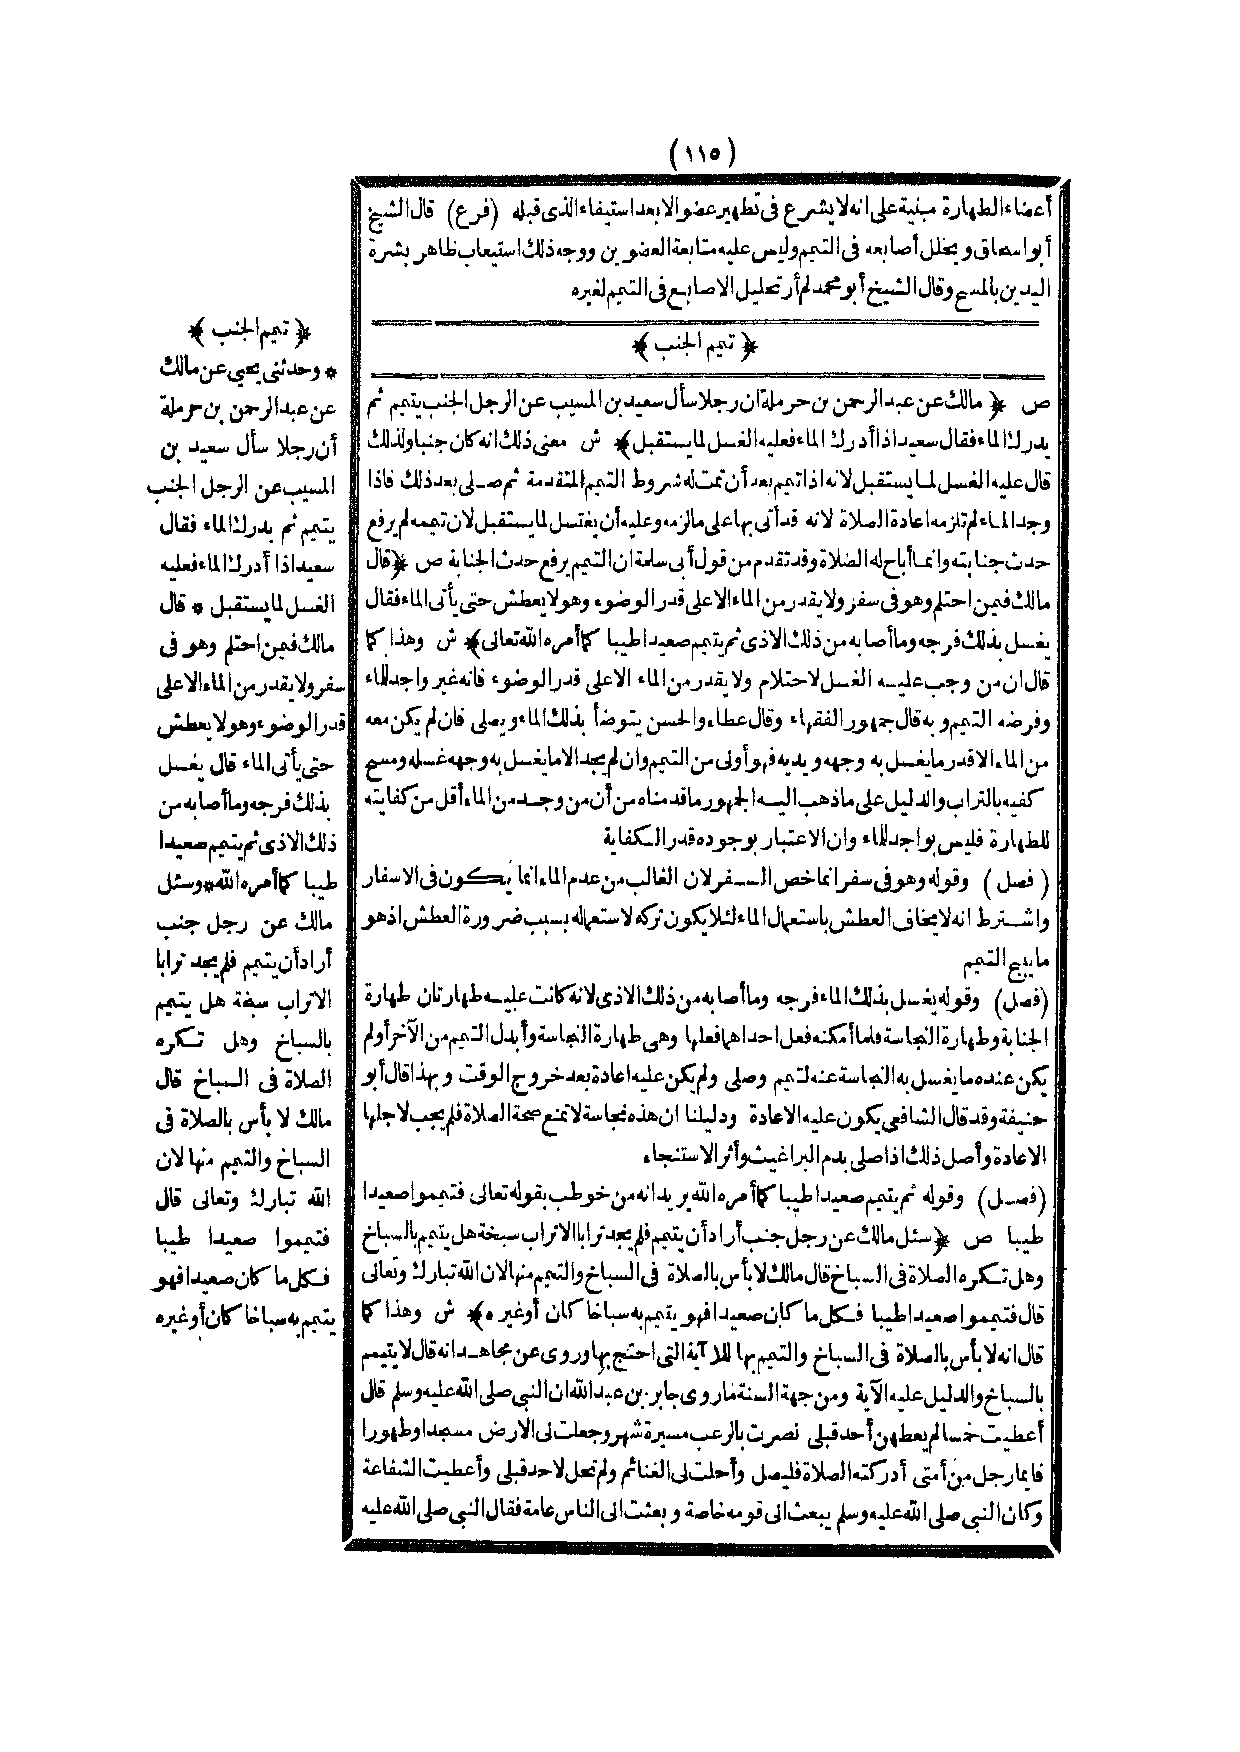 (١١٥)
أعضاء الطهارة مبنية على انه لا يشرع فى تطهير عضو الا بعد استيفاء الذى قبله (فرع) قال الشيخ
أبو اسحاق ويخلل أصابعه فى التيمم وليس عليه متابعة العضوين ووجه ذلك استيعاب ظاهر بشرة
اليدين بالمسح وقال الشيخ أبو محمد لم أر تخليل الاصابع فى التيمم لغيره
﴿ تيمم الجنب ﴾
ص ﴿ مالك عن عبد الرحمن بن حرملة ان رجلا سأل سعيد بن المسيب عن الرجل الجنب يتيمم ثم
يدرك الماء فقال سعيد اذا أدرك الماء فعليه الغسل لما يستقبل ﴾ ش معنى ذلك انه كان جنبا ولذلك
قال عليه الغسل لما يستقبل لانه اذا تيمم بعد أن تمت له شروط التيمم المتقدمة ثم صلى بعد ذلك فاذا
وجد الماء لم تلزمه اعادة الصلاة لانه قد أتى بها على ما لزمه وعليه أن يغتسل لما يستقبل لان تيممه لم يرفع
حدث جنابته وانما أباح له الصلاة وقد تقدم من قول أبى سلمة ان التيمم يرفع حدث الجنابة ص ﴿ قال
مالك فيمن احتلم وهو فى سفر ولا يقدر من الماء الا على قدر الوضوء وهو لا يعطش حتى يأتى الماء فقال
يغسل بذلك فرجه وما أصابه من ذلك الاذى ثم يتيمم صعيدا طيبا كما أمره الله تعالى ﴾ ش وهذا كما
قال ان من وجب عليه الغسل لاحتلام ولا يقدر من الماء الا على قدر الوضوء فانه غير واجد للماء
وفرضه التيمم وبه قال جمهور الفقهاء وقال عطاء والحسن يتوضأ بذلك الماء ويصلى فان لم يكن معه
من الماء الا قدر ما يغسل به وجهه ويديه فهو أولى من التيمم وان لم يجد الا ما يغسل به وجهه غسله ومسح
كفيه بالتراب والدليل على ما ذهب اليه الجمهور ما قدمناه من أن من وجد من الماء أقل من كفايته
للطهارة فليس بواجد للماء وان الاعتبار بوجوده قدر الكفاية
(فصل) وقوله وهو فى سفر انما خص السفر لان الغالب من عدم الماء انما يكون فى الاسفار
واشترط انه لا يخاف العطش باستعمال الماء لئلا يكون تركه لاستعماله بسبب ضرورة العطش اذ هو
ما يبيح التيمم
(فصل) وقوله يغسل بذلك الماء فرجه وما أصابه من ذلك الاذى لانه كانت عليه طهارتان طهارة
الجنابة وطهارة النجاسة فلما أمكنه فعل احداهما فعلها وهى طهارة النجاسة وأبدل التيمم من الآخر أو لم
يكن عنده ما يغسل به النجاسة عنه لتيمم وصلى ولم يكن عليه اعادة بعد خروج الوقت وبهذا قال أبو
حنيفة وقد قال الشافعى يكون عليه الاعادة ودليلنا ان هذه نجاسة لا تمنع صحة الصلاة فلم يجب لاجلها
الاعادة وأصل ذلك اذا صلى بدم البراغيث وأثر الاستنجاء
(فصل) وقوله ثم يتيمم صعيدا طيبا كما أمره الله يريد انه من خوطب بقوله تعالى فتيمموا صعيدا
طيبا ص ﴿ سئل مالك عن رجل جنب أراد أن يتيمم فلم يجد ترابا الا تراب سبخة هل يتيمم بالسباخ
وهل تكره الصلاة فى السباخ قال مالك لا بأس بالصلاة فى السباخ والتيمم منها لان الله تبارك وتعالى
قال فتيمموا صعيدا طيبا فكل ما كان صعيدا فهو يتيمم به سباخا كان أو غيره ﴾ ش وهذا كما
قال انه لا بأس بالصلاة فى السباخ والتيمم بها للآية التى احتج بها وروى عن مجاهد انه قال لا يتيمم
بالسباخ والدليل عليه الآية ومن جهة السنة ما روى جابر بن عبد الله ان النبى صلى الله عليه وسلم قال
أعطيت خمسا لم يعطهن أحد قبلى نصرت بالرعب مسيرة شهر وجعلت لى الارض مسجدا وطهورا
فايما رجل من أمتى أدركته الصلاة فليصل وأحلت لى الغنائم ولم تحل لاحد قبلى وأعطيت الشفاعة
وكان النبى صلى الله عليه وسلم يبعث الى قومه خاصة وبعثت الى الناس عامة فقال النبى صلى الله عليه
﴿ تيمم الجنب ﴾
* وحدثنى يحيى عن مالك
عن عبد الرحمن بن حرملة
أن رجلا سأل سعيد بن
المسيب عن الرجل الجنب
يتيمم ثم يدرك الماء فقال
سعيد اذا أدرك الماء فعليه
الغسل لما يستقبل * قال
مالك فيمن احتلم وهو فى
سفر ولا يقدر من الماء الا على
قدر الوضوء وهو لا يعطش
حتى يأتى الماء قال يغسل
بذلك فرجه وما أصابه من
ذلك الاذى ثم يتيمم صعيدا
طيبا كما أمره الله * وسئل
مالك عن رجل جنب
أراد أن يتيمم فلم يجد ترابا
الا تراب سبخة هل يتيمم
بالسباخ وهل تكره
الصلاة فى السباخ قال
مالك لا بأس بالصلاة فى
السباخ والتيمم منها لان
الله تبارك وتعالى قال
فتيمموا صعيدا طيبا
فكل ما كان صعيدا فهو
يتيمم به سباخا كان أو غيره